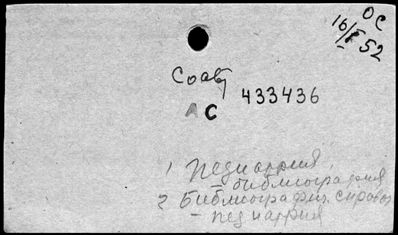 ОС
16/I 52
АС 433436
1 Педиатрия,
– библиография
2 Библиографич. справоч
– педиатрия